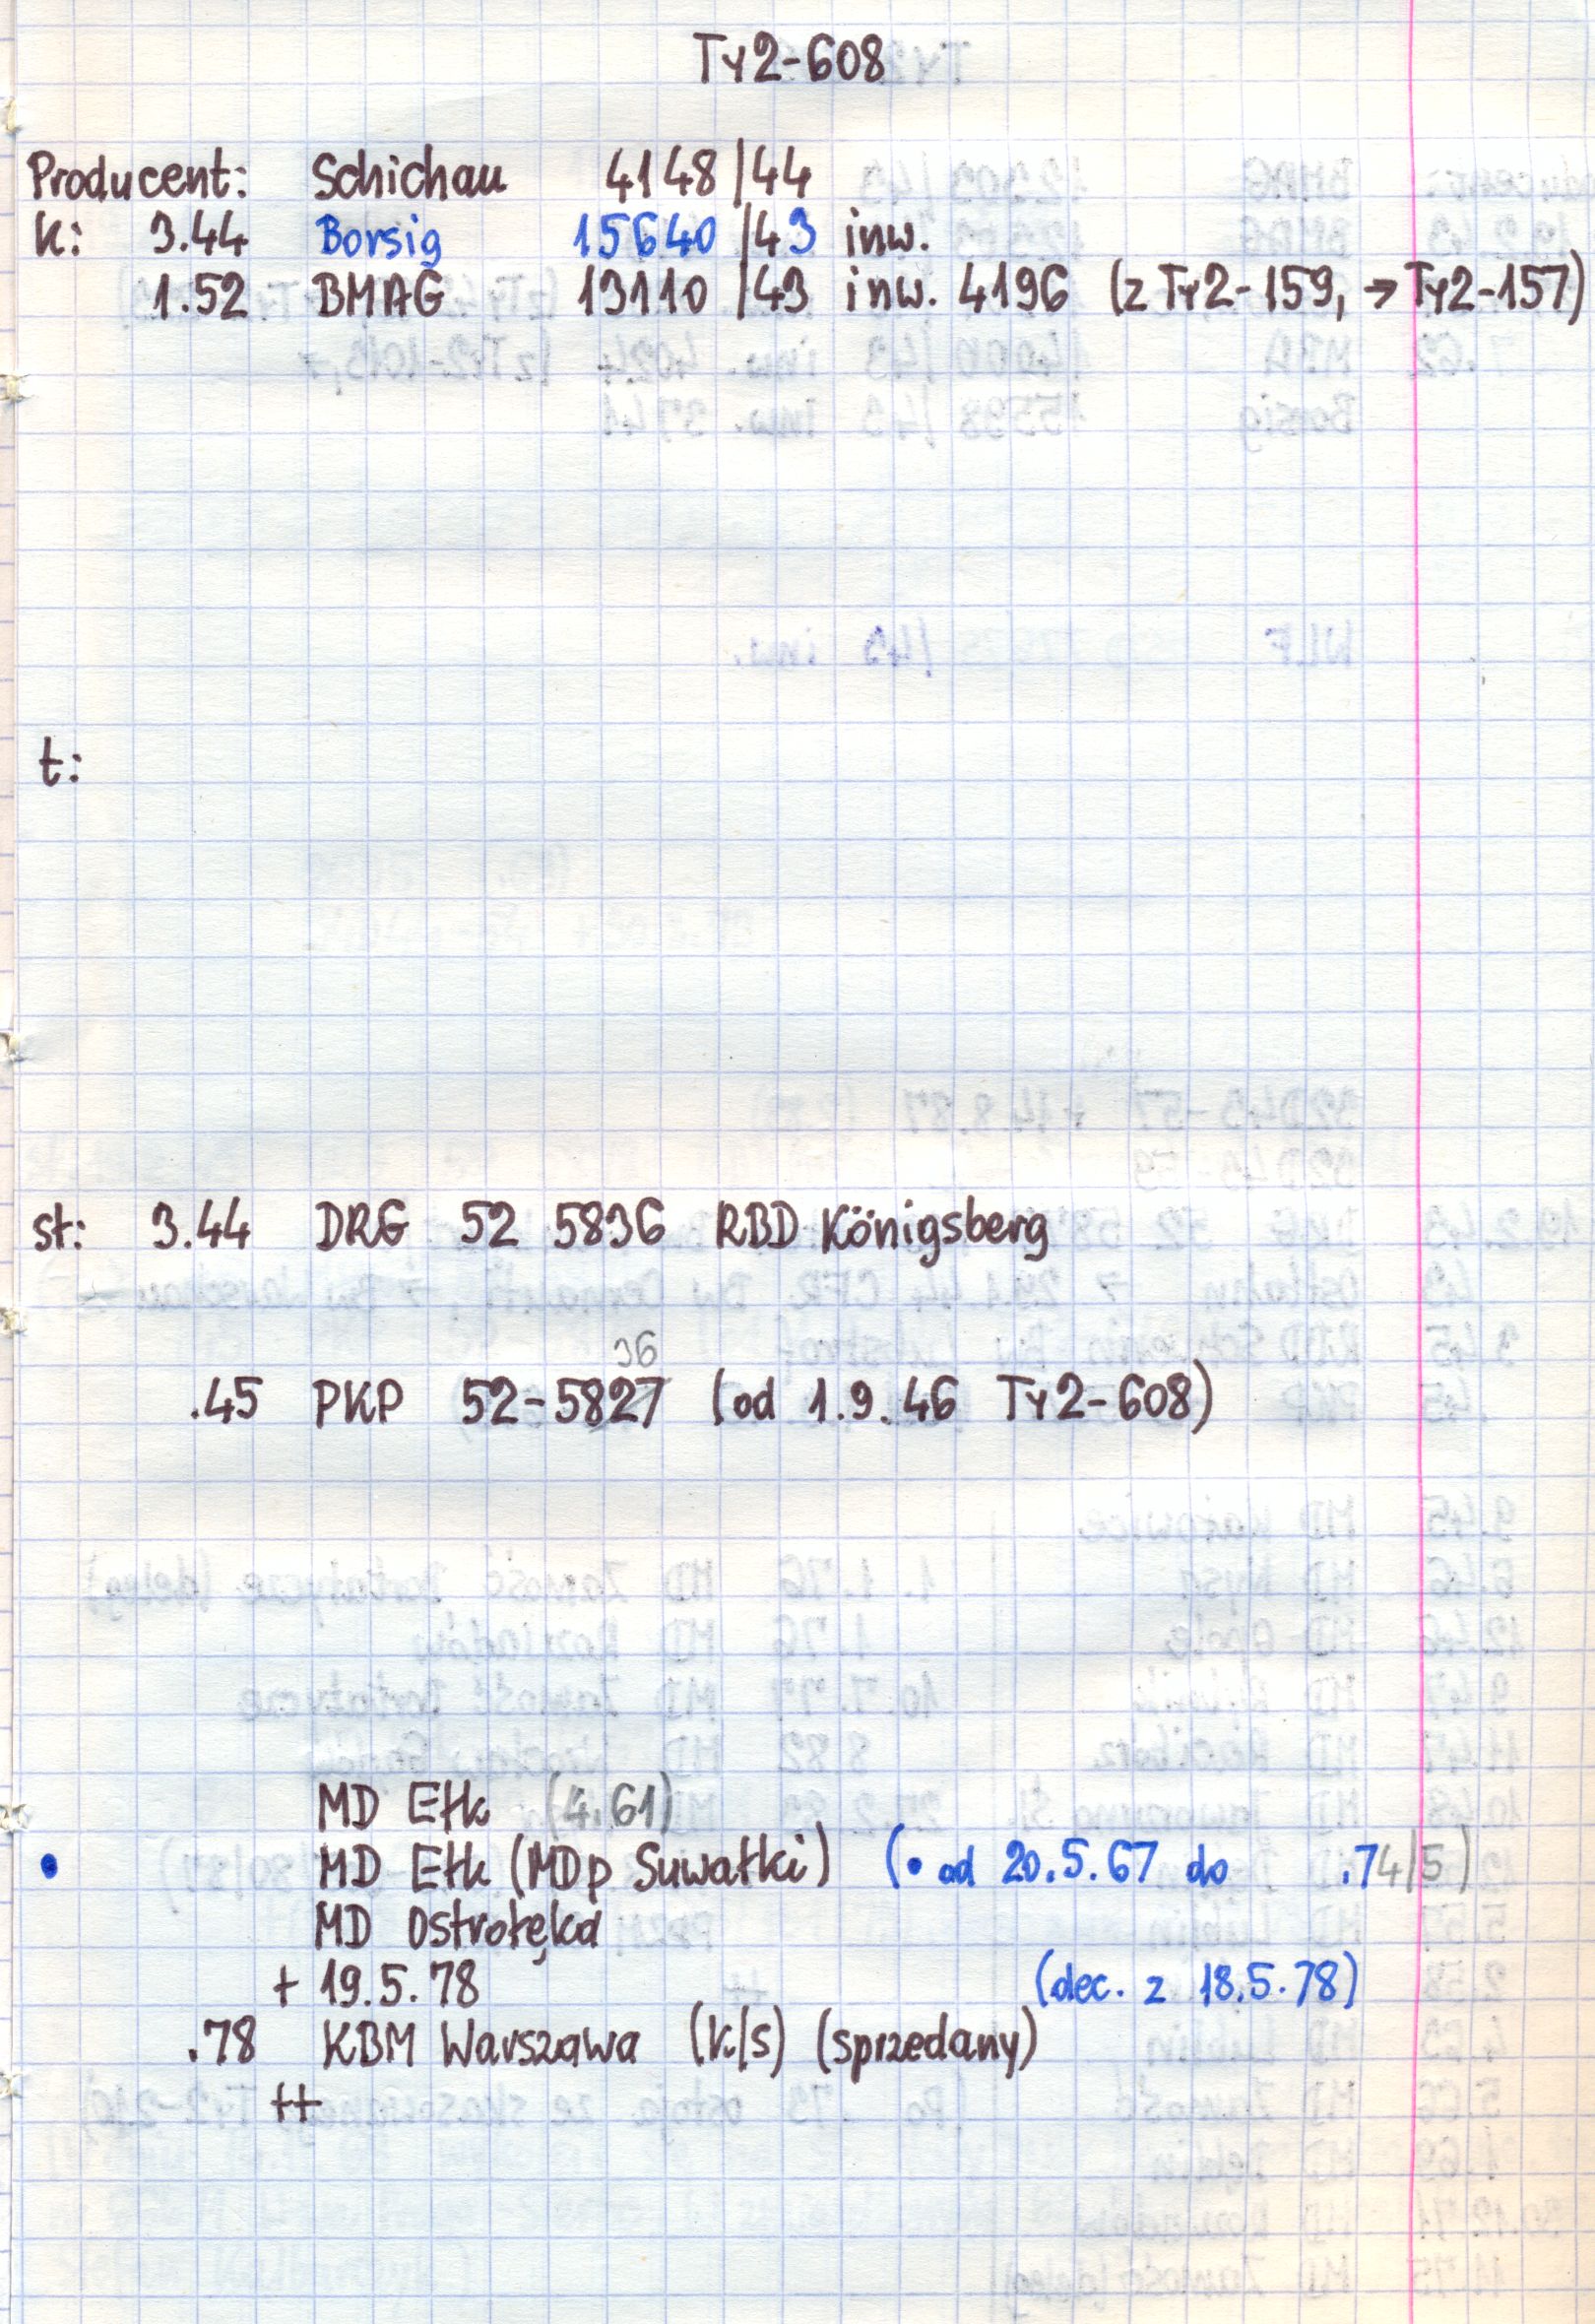 Ty2-608
Producent: Schichau 4148/44
k: 3.44 Borsig 15640/43 inw.
1.52 BMAG 13110/43 inw. 4196 (z Ty2-159, → Ty2-157)
t:
st: 3.44 DRG 52 5836 RBD Königsberg
36
.45 PKP 52-5827 (od 1.9.46 Ty2-608)
MD Ełk (4.61)
• MD Ełk (MDp Suwałki) (• od 20.5.67 do .74/5)
MD Ostrołęka
+ 19.5.78 (dec. z 18.5.78)
.78 KBM Warszawa (k/s) (sprzedany)
++